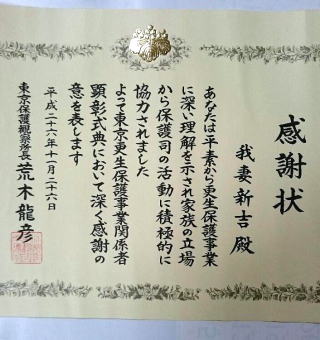 感謝状
我妻新吉殿
あなたは平素から更生保護事業
に深い理解を示され家族の立場
から保護司の活動に積極的に
協力されました
よって東京更生保護事業関係者
顕彰式典において深く感謝の
意を表します
平成二十六年十一月二十六日
東京保護観察所長 荒木龍彦